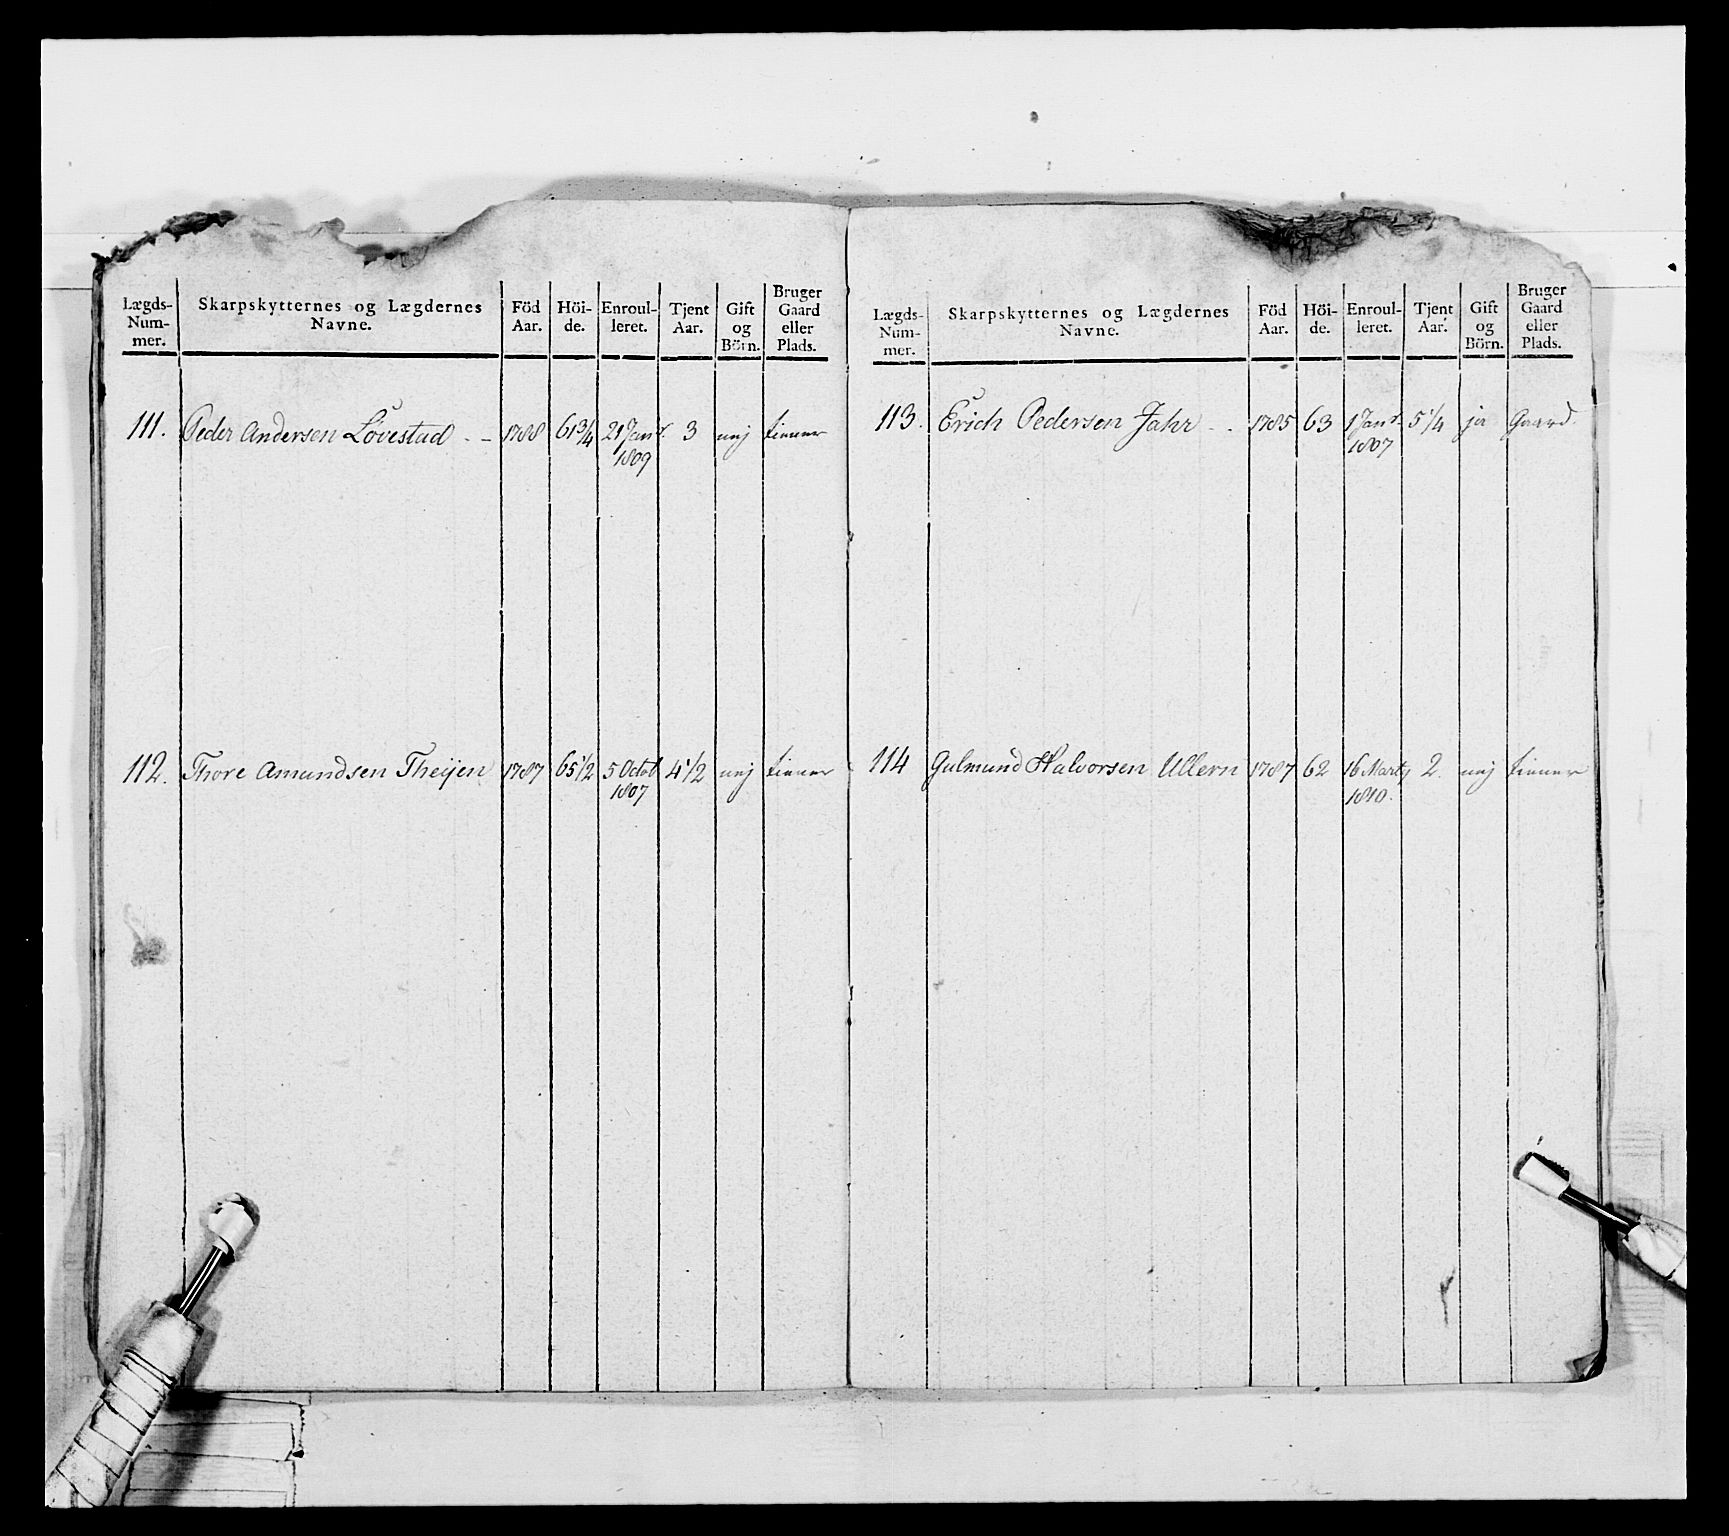 Lægds-Num-mer. Skarpskytternes og Lægdernes Navne. Föd Aar. Höi-de. Enroul-leret. Tjent Aar. Gift og Börn. Bruger Gaard eller Plads.
111. Peder Andersen Lövestad - - 1788 61 3/4 21 Janr. 3 nej tiener
1809
112. Thore Amundsen Theijen 1787 65 1/2 5 Octob 4 1/2 nej tiener
1807
Lægds-Num-mer. Skarpskytternes og Lægdernes Navne. Föd Aar. Höi-de. Enroul-leret. Tjent Aar. Gift og Börn. Bruger Gaard eller Plads.
113. Erich Pedersen Jahr - - 1785 63 1 Janr. 5 1/4 ja Gaard.
1807
114 Gulmund Halvorsen Ullern 1787 62 16 Marty 2. nej tiener
1810.